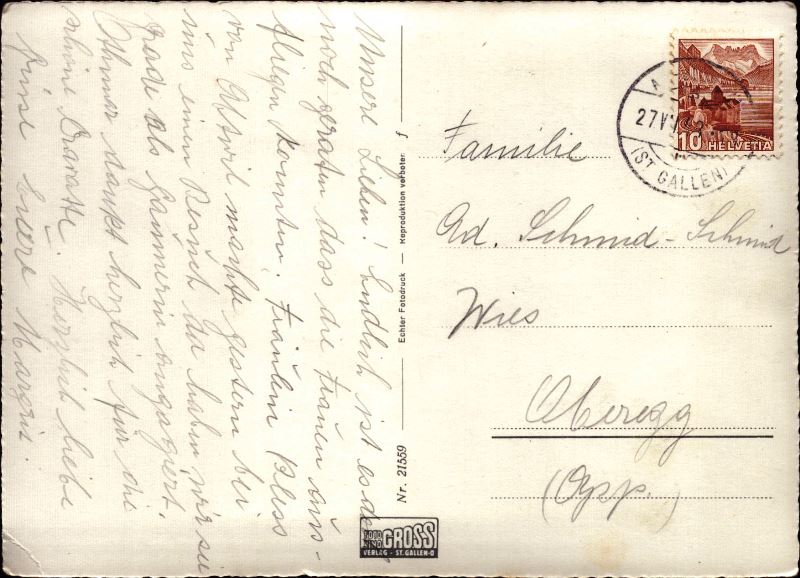 Unsere Lieben! Endlich ist es doch
noch geraten dass die Frauen aus-
fliegen konnten. Fräulein Bless
von Utzwil machte gestern bei
uns einen Besuch da haben wir sie
grade als Jammerin engagiert.
Othmar dankt herzlich für die
schöne Kravatte. Herzlich liebe
Grüsse Euere Margrit.
Nr. 21559 Echter Fotodruck — Reproduktion verboten
FOTO GROSS
VERLAG - ST. GALLEN-O
27 V
(ST GALLEN)
10 HELVETIA
Familie
Ad. Schmid-Schmid
Wies
Oberegg
(App.)